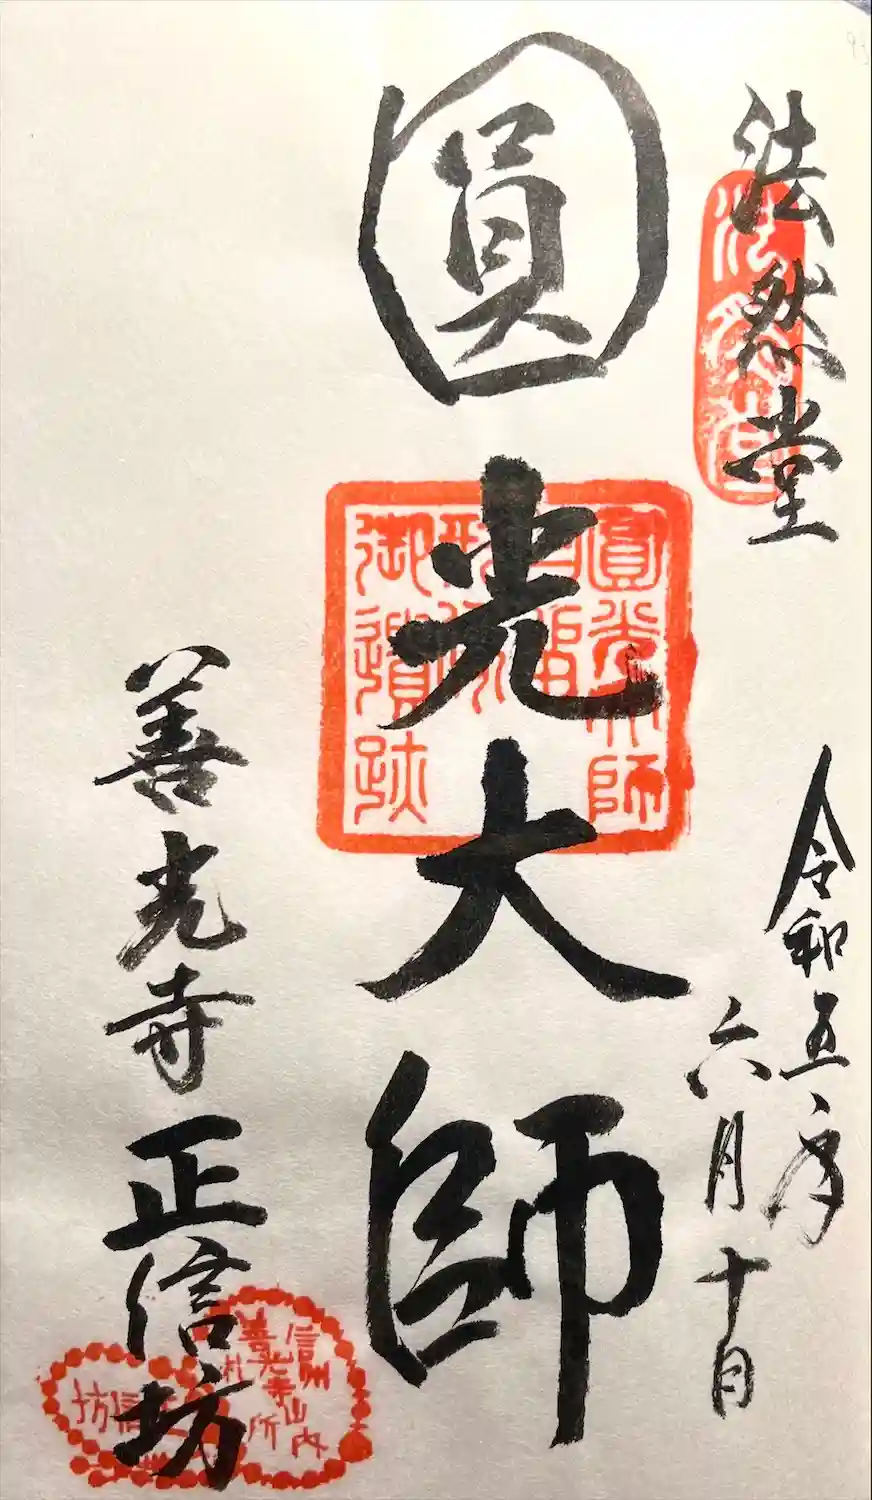 法然堂
令和五年
六月十日
圓光大師
善光寺正信坊
法然堂
圓光大師
御遺跡
信州
善光寺山内
札所
正信坊